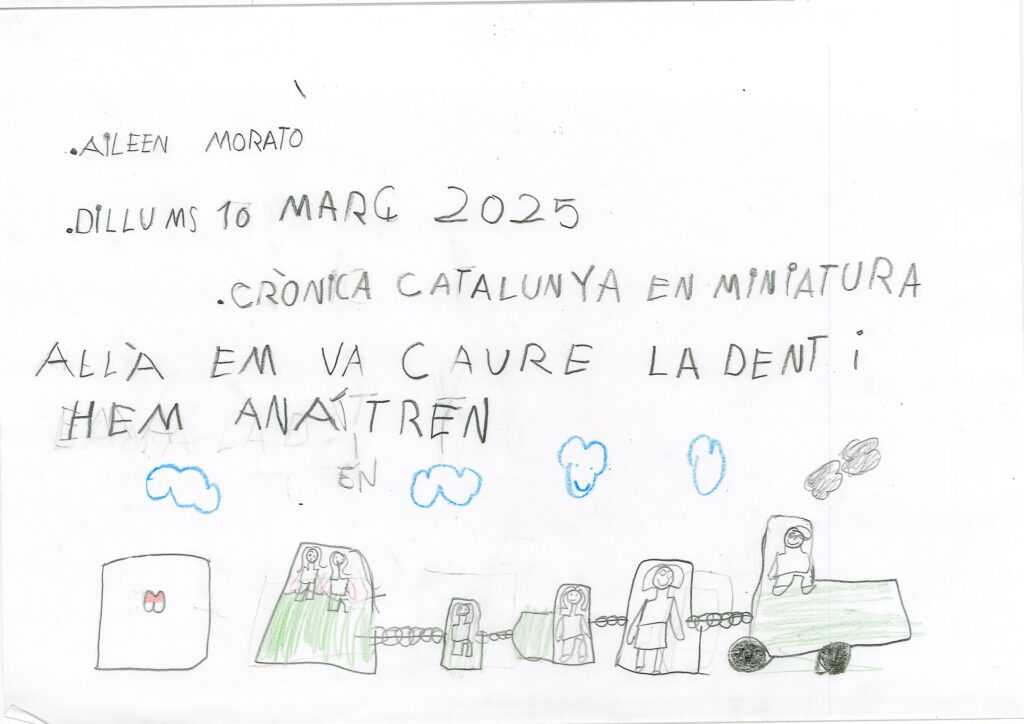 .AILEEN MORATO
.DILLUMS 10 MARÇ 2025
.CRÒNICA CATALUNYA EN MINIATURA
ALLÀ EM VA CAURE LA DENT I
HEM ANAT TREN
EN